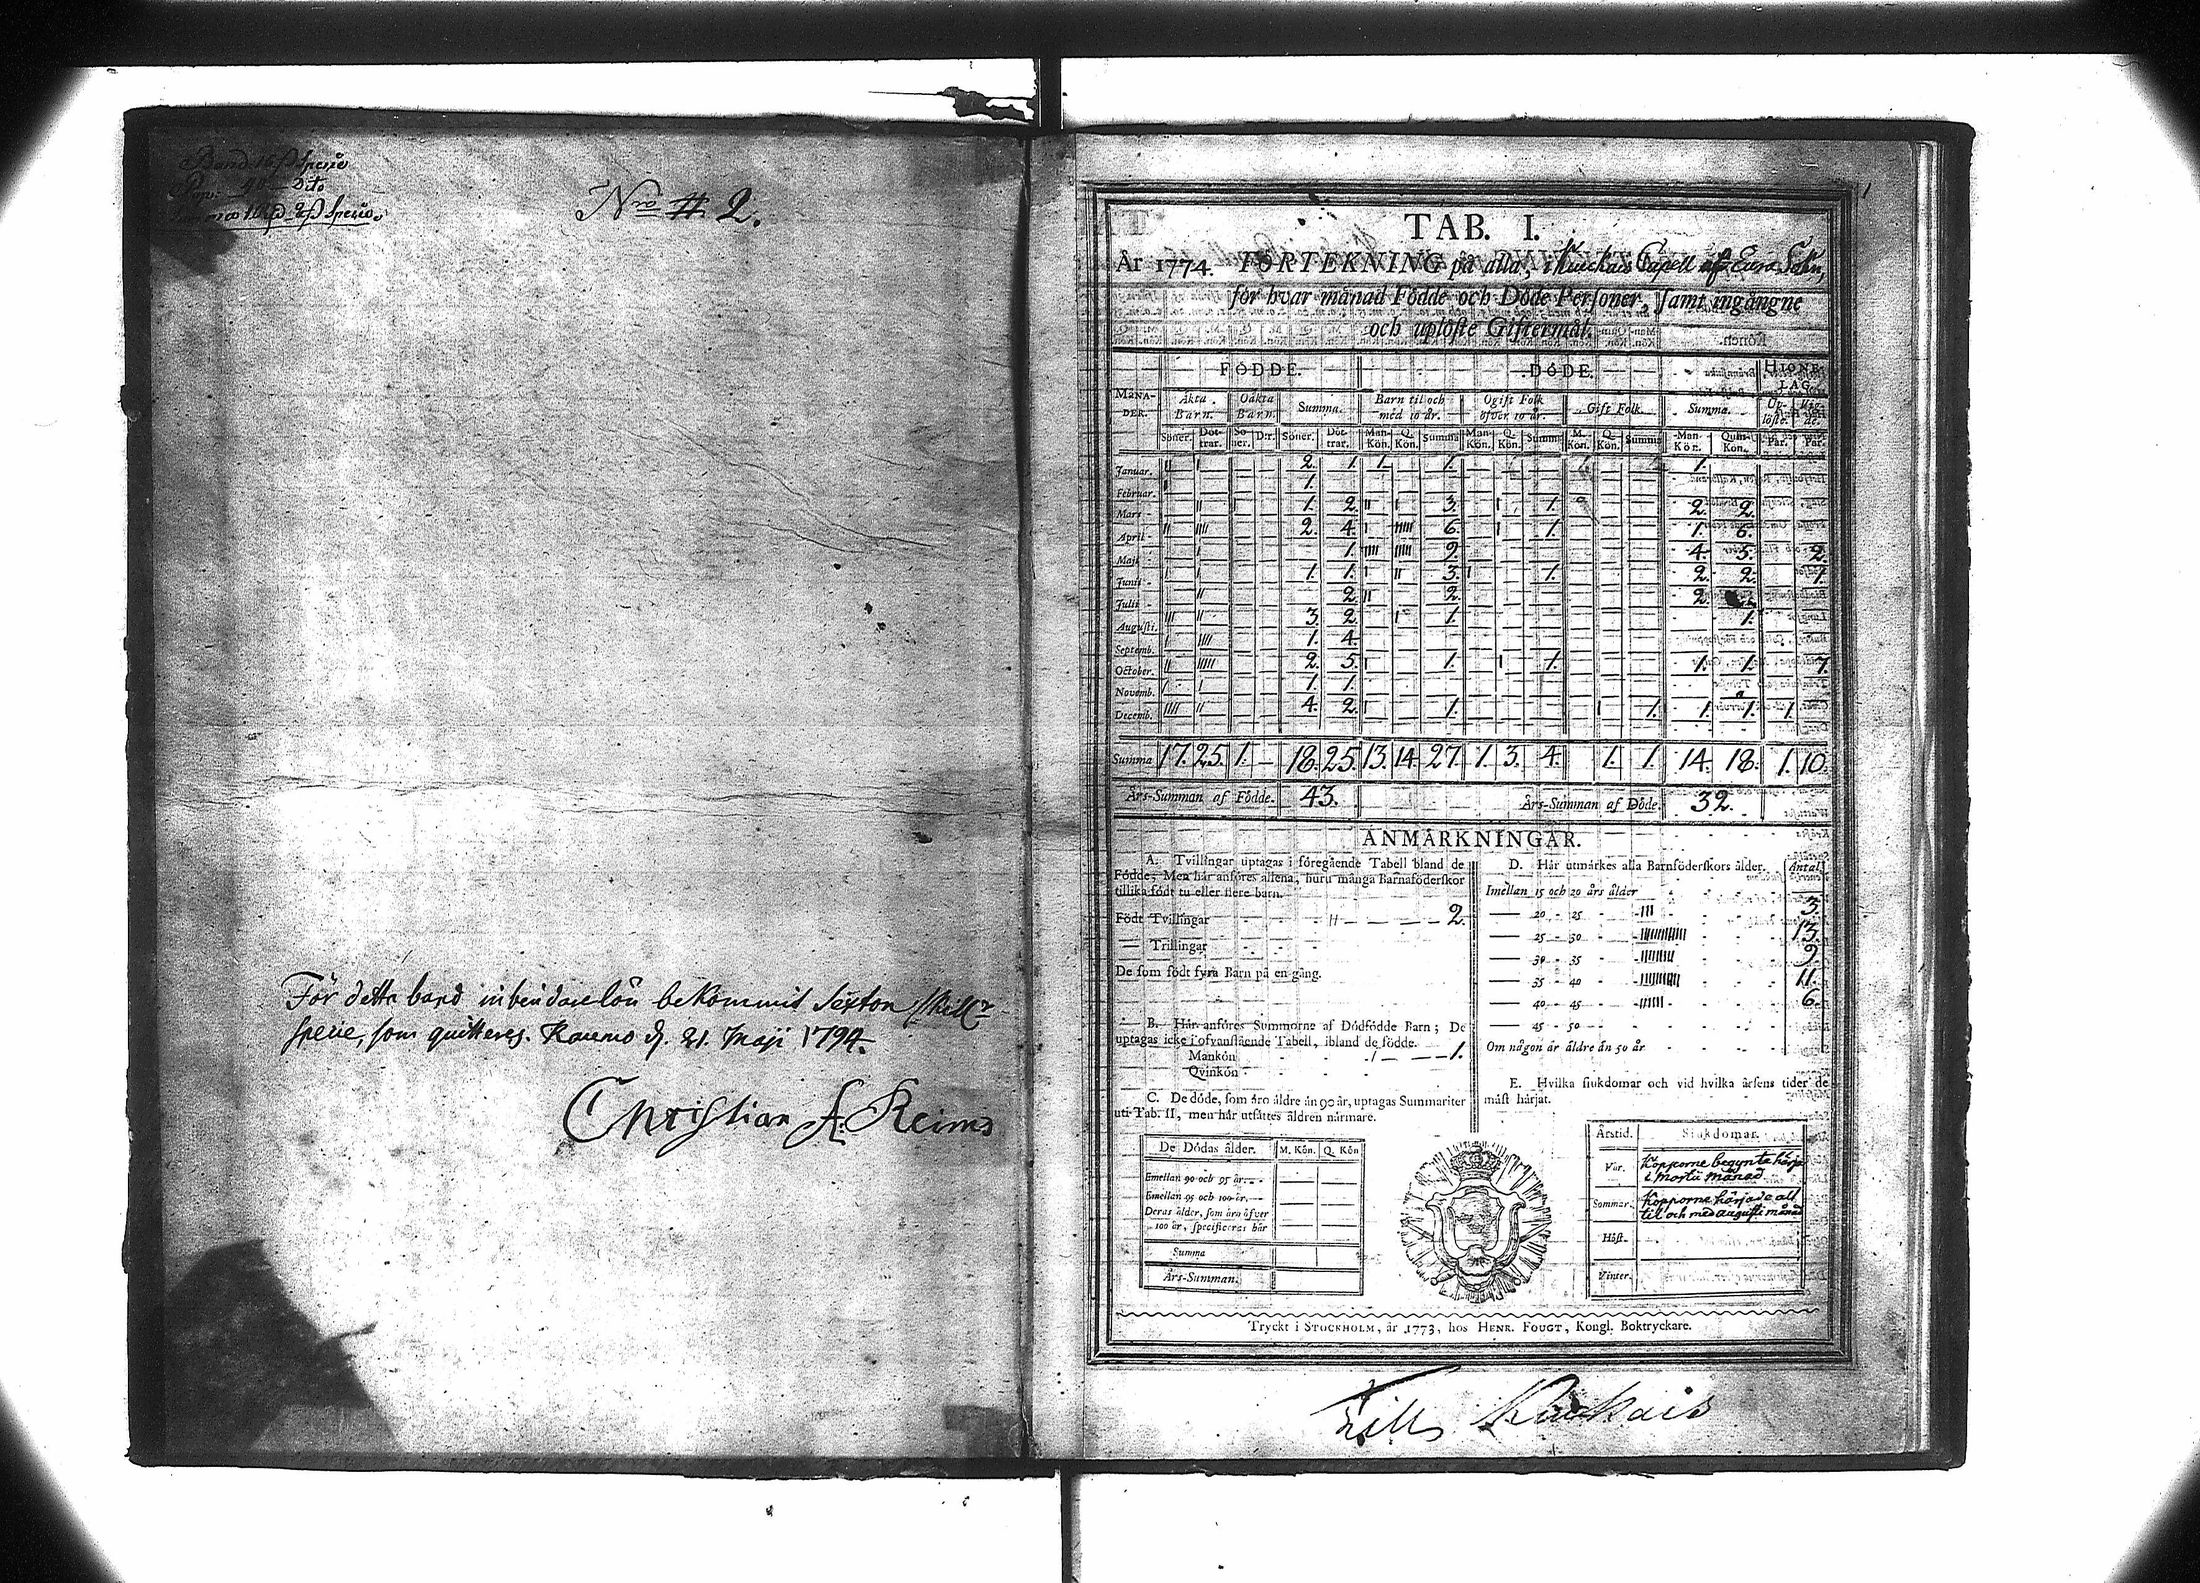 Band 16 ß Specie
40 Dito
2 ß Specie.
Nro # 2.
För detta band inbindarelön bekommit Sexton skill.r
specie, som quitteres. Raumo d. 21. Maji 1794.
Christian A: Reims
TAB. I.
År 1774. FÖRTEKNING på alla, i Kiuckais Capell af Eura Sokn,
för hvar månad Födde och Döde Personer, samt ingångne
och uplöste Giftermål.
MÅNADER. FÖDDE. DÖDE. HIONELAG.
Äkta Barn. Oäkta Barn. Summa. Barn til och med 10 år. Ogift Folk öfver 10 år. Gift Folk. Summa. Uplöste.
Söner. Döttrar. Söner. D:r. Söner. Döttrar. Man-Kön. Q. Kön. Summa Man-Kön. Q. Kön. Summa M. Kön. Q. Kön. Summa Man-Kön. Quin-Kön. Par. Par.
Januar. II I 2. 1. 1. 1. 1.
Februar. I 1.
Mars - II I 1. 2. II I 3. I 1. 2. 2.
April - II IIII 2. 4. I IIIII 6. I 1. 1. 6.
Maji - I 1. IIII IIIII 9. 4. 5. 2.
Junii - I I 1. 1. I II 3. I 1. 2. 2. 1.
Julii - II 2. II 2. 2.
Augusti. III II 3. 2. I 1. 1.
Septemb. I IIII 1. 4.
October. II IIIII 2. 5. I 1. I 1. 1. 1. 7.
Novemb. I I 1. 1.
Decemb. IIII II 4. 2. I 1. I 1. 1. 1. 1.
Summa 17. 25. 1. — 18. 25. 13. 14. 27. 1. 3. 4. 1. 1. 14. 18. 1. 10.
Års-Summan af Födde. 43. Års-Summan af Döde. 32.
ANMÄRKNINGAR.
A. Tvillingar uptagas i föregående Tabell bland de
Födde; Men här anföres allena, huru många Barnaföderskor
tillika födt tu eller flere barn.
Födt Tvillingar II 2.
— Trillingar
De som födt fyra Barn på en gång.
B. Här anföres Summorne af Dödfödde Barn; De
uptagas icke i ofvanstående Tabell, ibland de födde.
Mankön I 1.
Qvinkön
C. De döde, som äro äldre än 90 år, uptagas Summariter
uti Tab. II, men här utsättes åldren närmare.
De Dödas ålder. M. Kön. Q. Kön
Emellan 90 och 95 år.
Emellan 95 och 100 år.
Deras ålder, som äro öfver
100 år, specificeras här
Summa
Års-Summan.
D. Här utmärkes alla Barnföderskors ålder. Antal.
Imellan 15 och 20 års ålder
— 20 - 25 III 3.
— 25 - 30 IIIIIIIIIIIII 13.
— 30 - 35 IIIIIIIII 9.
— 35 - 40 IIIIIIIIIII 11.
— 40 - 45 IIIIII 6.
— 45 - 50
Om någon är äldre än 50 år
E. Hvilka siukdomar och vid hvilka årsens tider de
mäst härjat.
Årstid. Siukdomar.
Vår. Kopporne begynte härja
i Martii månad
Sommar. Kopporne härjade alt
til och med augusti månad
Höst.
Vinter.
Tryckt i STOCKHOLM, år 1773, hos HENR. FOUGT, Kongl. Boktryckare.
Kiuckais